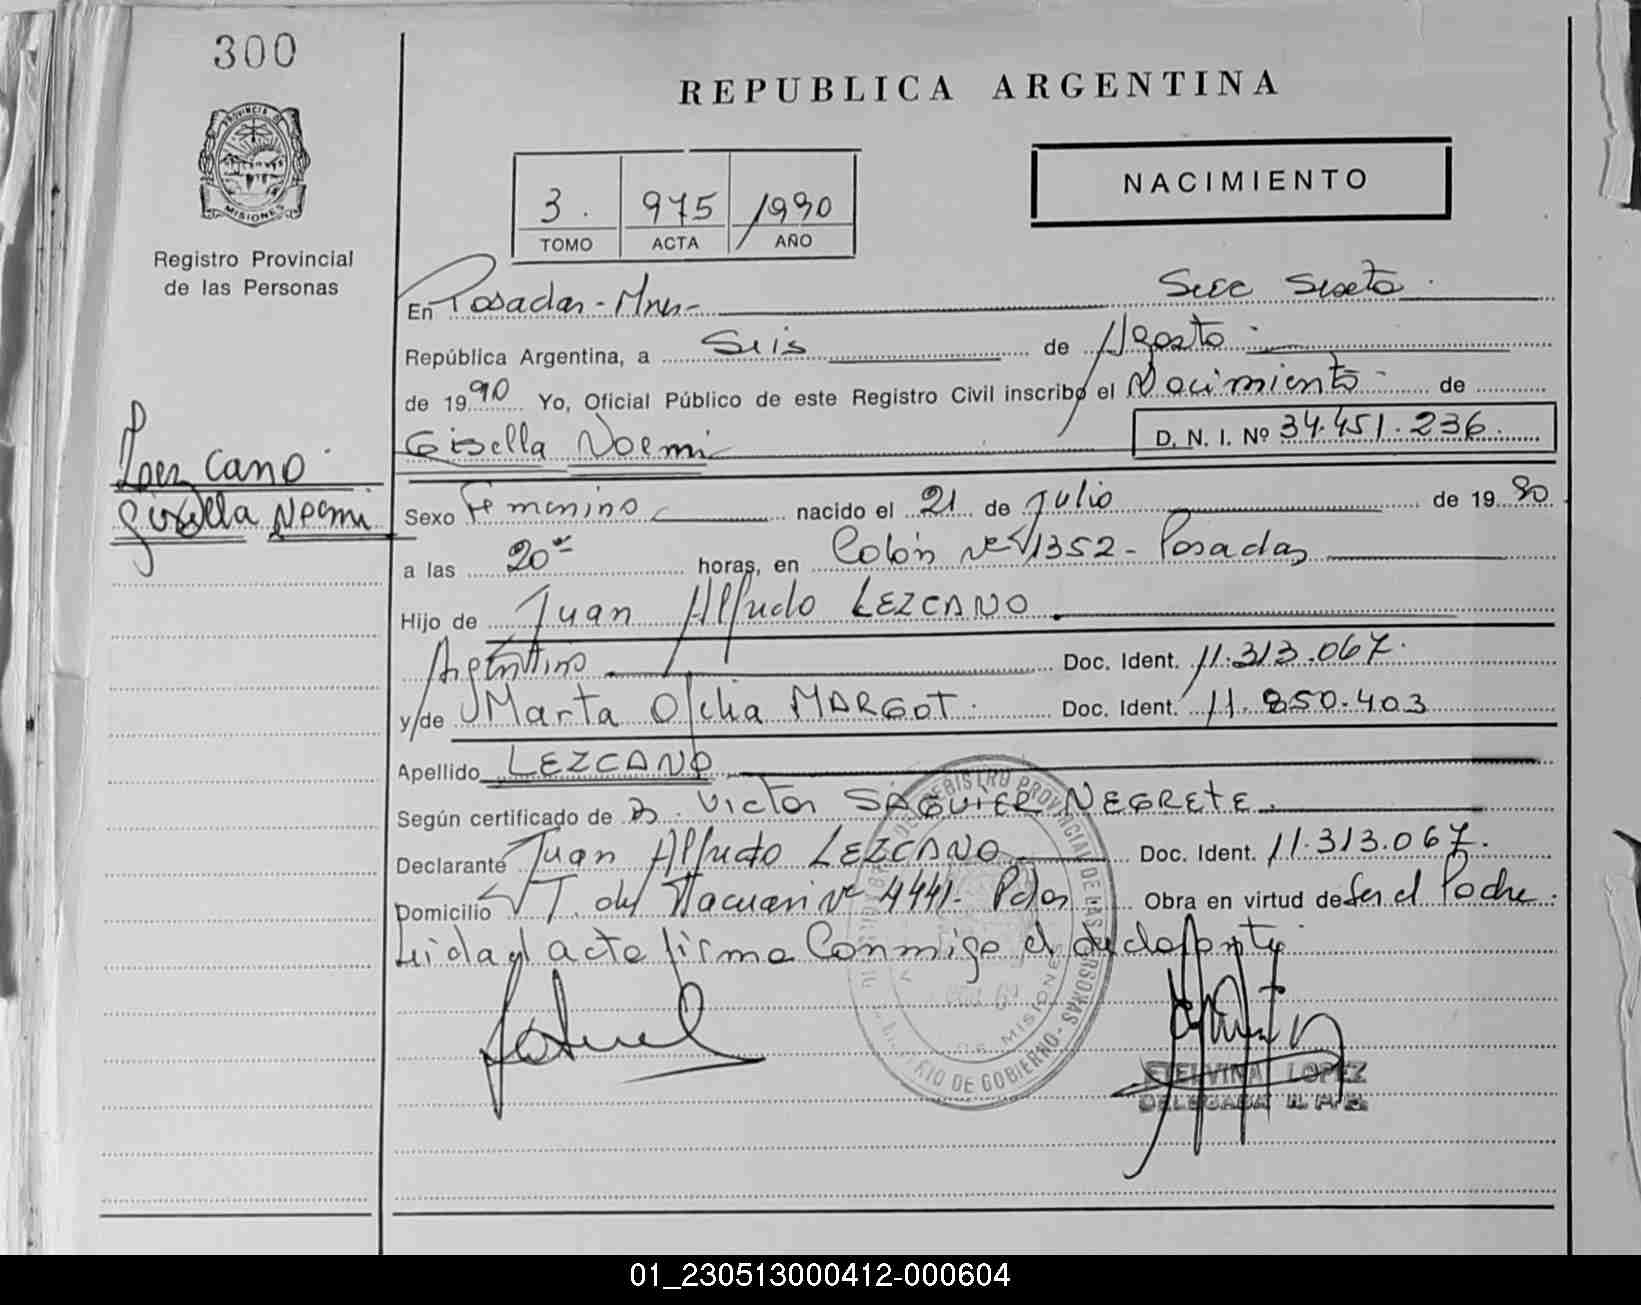 300
REPUBLICA ARGENTINA
PROVINCIA DE
MISIONES
NACIMIENTO
3. 975 1990
TOMO ACTA AÑO
Registro Provincial
de las Personas
En Posadas - Mnes - Secc Sexta.
República Argentina, a Seis de Agosto
de 1990 Yo, Oficial Público de este Registro Civil inscribo el Nacimiento de
Gisella Noemi D. N. I. Nº 34.451.236.
Lezcano
Gisella Noemi
Sexo Femenino nacido el 21 de Julio de 1990.
a las 20 horas, en Colón Nº 1352 - Posadas
Hijo de Juan Alfredo LEZCANO
Argentino Doc. Ident. 11.313.067.
y de Marta Ofelia MARGOT. Doc. Ident. 11.850.403
Apellido LEZCANO
Según certificado de Victor SAGUIER NEGRETE.
Declarante Juan Alfredo LEZCANO Doc. Ident. 11.313.067.
Domicilio T. del Tacuari Nº 4441 - Pdas Obra en virtud de Ser el Padre.
Leida el acta firma Conmigo el declarante.
REGISTRO PROVINCIAL DE LAS PERSONAS - MINISTERIO DE GOBIERNO
MISIONES
ETELVINA LOPEZ
DELEGADA R. P. P.
01_230513000412-000604